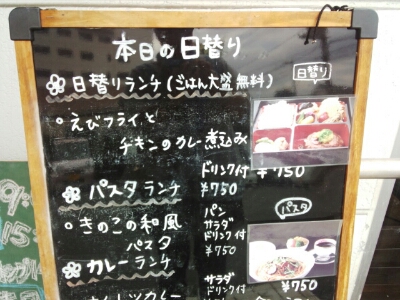 本日の日替り
日替りランチ(ごはん大盛無料)
日替り
。えびフライと
チキンのカレー煮込み
ドリンク付 ¥750
パスタランチ ¥750
パスタ
。きのこの和風
パスタ
パン
サラダ
ドリンク付
¥750
カレーランチ
サラダ
ドリンク付
¥750